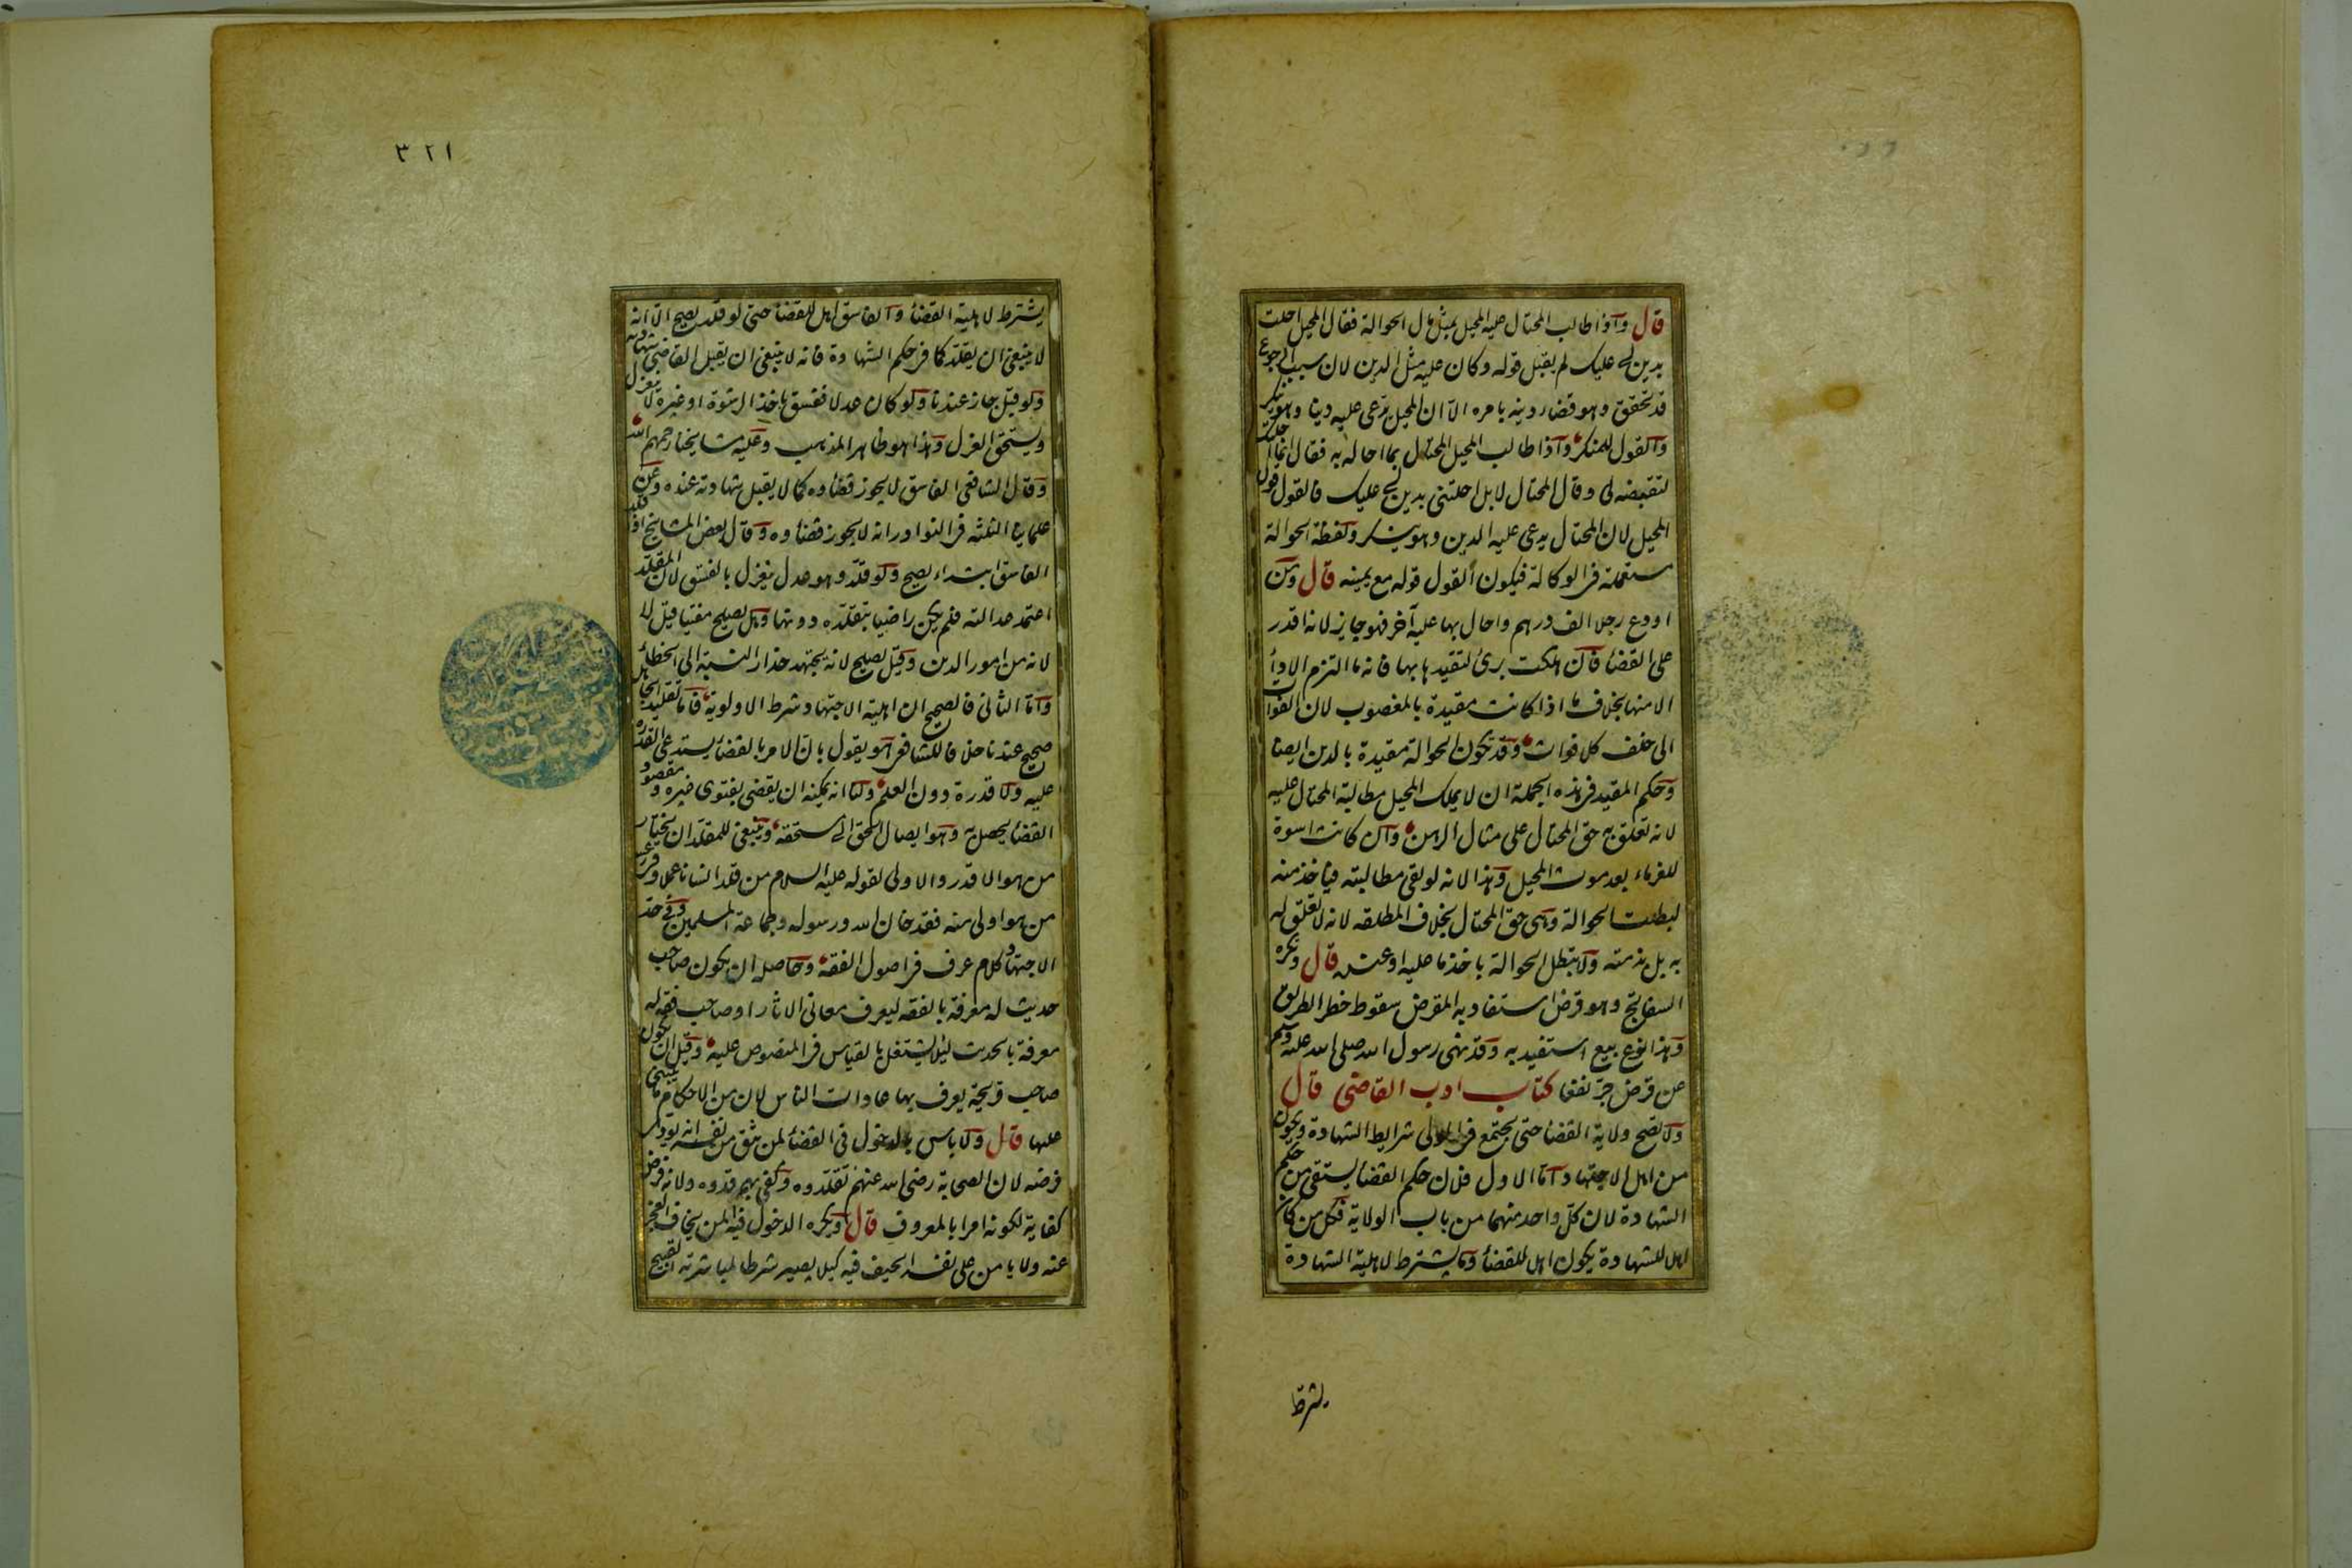 قال وإذا طالب المحتال عليه المحيل بمثل مال الحوالة فقال المحيل احلت
بدين لي عليك لم يقبل قوله وكان عليه مثل الدين لان سبب الرجوع
قد تحقق وهو قضاء دينه بامره الا ان المحيل يدعي عليه دينا وهو ينكر
والقول للمنكر واذا طالب المحيل المحتال بما احاله به فقال انما احلتك
لتقبضه لي وقال المحتال لا بل احلتني بدين لي عليك فالقول قول
المحيل لان المحتال يدعي عليه الدين وهو ينكر ولفظة الحوالة
مستعملة في الوكالة فيكون القول قوله مع يمينه قال ومن
اودع رجلا الف درهم واحال بها عليه آخر فهو جايز لانه اقدر
على القضاء فان هلكت برئ لتقيدها بها فانه ما التزم الاداء
الا منها بخلاف ما اذا كانت مقيدة بالمغصوب لان الفوات
الى خلف كلا فوات وقد تكون الحوالة مقيدة بالدين ايضا
وحكم المقيد في هذه الجملة ان لا يملك المحيل مطالبة المحتال عليه
لانه تعلق به حق المحتال على مثال الرهن وان كانت اسوة
للغرماء بعد موت المحيل وهذا لانه لو بقي مطالبته فياخذ منه
لبطلت الحوالة وهي حق المحتال بخلاف المطلقه لانه لا تعلق له
به بل بذمته ولا تبطل الحوالة باخذ ما عليه او عنده قال وتكره
السفاتج وهو قرض استفاد به المقرض سقوط خطر الطريق
وهذا نوع بيع استفيد به وقد نهى رسول الله صلى الله عليه وسلم
عن قرض جر نفعا كتاب ادب القاضي قال
ولا تصح ولاية القضاء حتى يجتمع في المولى شرايط الشهادة ويكون
من اهل الاجتهاد اما الاول فلان حكم القضاء يستقى من حكم
الشهادة لان كل واحد منهما من باب الولاية فكل من كان
اهلا للشهادة يكون اهلا للقضاء وما يشترط لاهلية الشهادة
يشترط
٣٢١
يشترط لاهلية القضاء والفاسق اهل للقضاء حتى لو قلد يصح الا انه
لا ينبغي ان يقلد كما في حكم الشهادة فانه لا ينبغي ان يقبل القاضي شهادته
ولو قبل جاز عندنا ولو كان عدلا ففسق باخذ الرشوة او غيره لا ينعزل
ويستحق العزل وهذا هو ظاهر المذهب وعليه مشايخنا رحمهم الله
وقال الشافعي الفاسق لا يجوز قضاؤه كما لا يقبل شهادته عنده وعن
علمائنا الثلثه في النوادر انه لا يجوز قضاؤه وقال بعض المشايخ اذا قلد
الفاسق ابتداء يصح ولو قلد وهو عدل ينعزل بالفسق لان المقلد
اعتمد عدالته فلم يكن راضيا بتقلده دونها وهل يصلح مفتيا قيل لا
لانه من امور الدين وقيل يصلح لانه يجتهد حذار النسبة الى الخطاء
واما الثاني فالصحيح ان اهلية الاجتهاد شرط الاولوية فاما تقليد الجاهل
صحيح عندنا خلافا للشافعي هو يقول بان الامر بالقضاء يستدعي القدرة
عليه ولا قدرة دون العلم ولنا انه يمكنه ان يقضي بفتوى غيره ومقصود
القضاء يحصل به وهو ايصال الحق الى مستحقه وينبغي للمقلد ان يختار
من هو الاقدر والاولى لقوله عليه السلام من قلد انسانا عملا وفي رعيته
من هو اولى منه فقد خان الله ورسوله وجماعة المسلمين وفي حد
الاجتهاد كلام عرف في اصول الفقه وحاصله ان يكون صاحب
حديث له معرفة بالفقه ليعرف معاني الاثار او صاحب فقه له
معرفة بالحديث ليلا يشتغل بالقياس في المنصوص عليه وقيل ان يكون
صاحب قريحة يعرف بها عادات الناس لان من الاحكام ما يبتنى
عليها قال ولا باس بالدخول في القضاء لمن يثق من نفسه انه يودي
فرضه لان الصحابة رضي الله عنهم تقلدوه وكفى بهم قدوه ولانه فرض
كفاية لكونه امرا بالمعروف قال ويكره الدخول فيه لمن يخاف العجز
عنه ولا يا من على نفسه الحيف فيه كيلا يصير شرطا لمباشرته القبيح